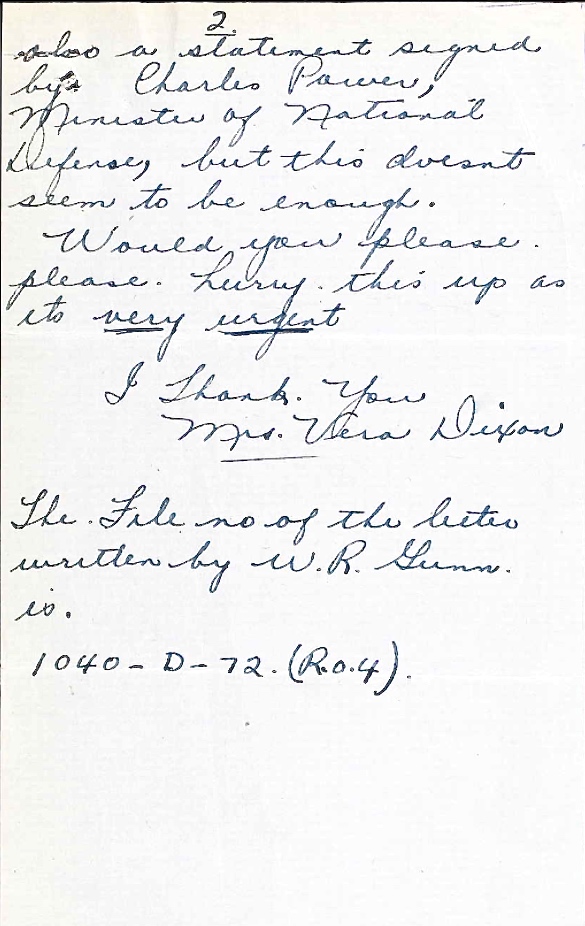 2.
also a statement signed
by Charles Power,
Minister of National
Defense, but this doesnt
seem to be enough.
Would you please.
please. hurry. this up as
its very urgent
I Thank. You
Mrs. Vera Dixon
The. File no of the letter
written by W. R. Gunn.
is.
1040 - D - 72. (R.O.4).